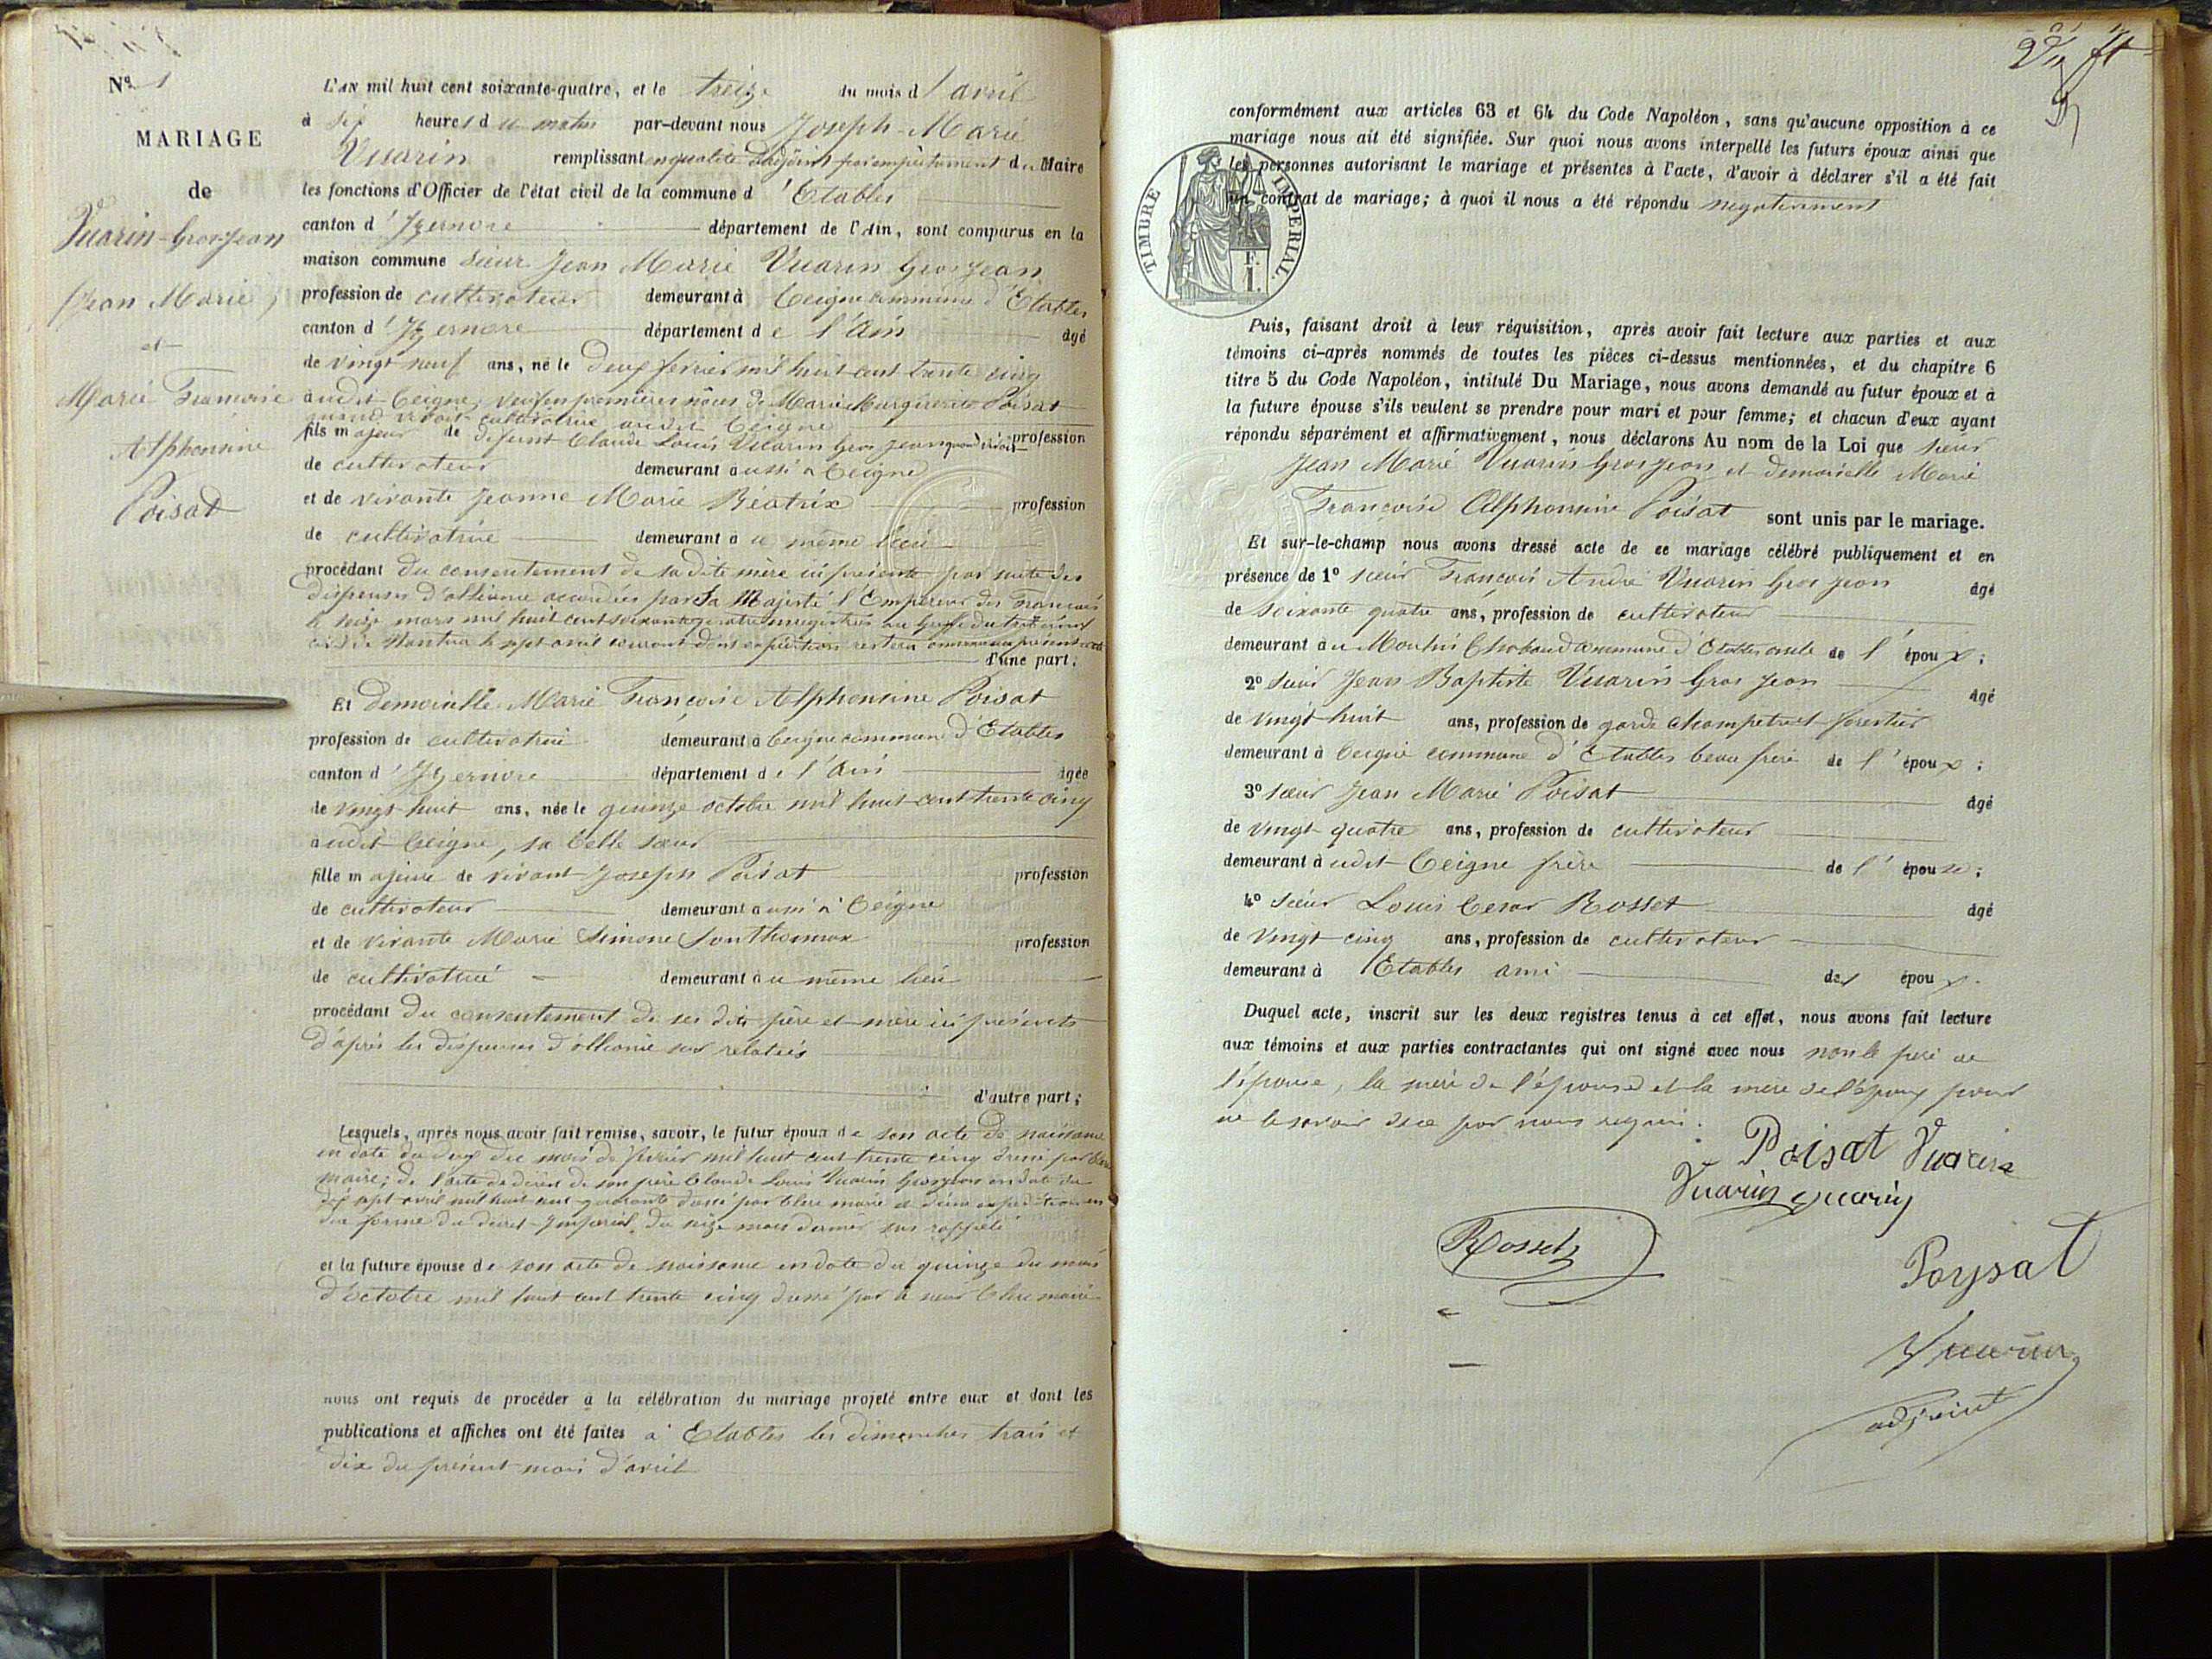 Nº 1
MARIAGE
de
Vuarin-Grosjean
(Jean Marie)
et
Marie Francoise
Alphonsine
Poisat
L'AN mil huit cent soixante-quatre, et le treize du mois d'avril
à six heures du matin par-devant nous Joseph-Marie
Vuarin remplissant en qualité d'adjoint par empêchement du Maire
les fonctions d'Officier de l'état civil de la commune d'Etables
canton d'Izernore département de l'Ain, sont comparus en la
maison commune sieur Jean Marie Vuarin Gros Jean
profession de cultivateur demeurant à Ceigne commune d'Etables
canton d'Izernore département de l'Ain âgé
de vingt neuf ans, né le deux fevrier mil huit cent trente cinq
audit Ceigne, veuf en premières nôces de Marie Margueritte Poisat
quand vivait cultivatrice audit Ceigne
fils majeur de defunt Claude Louis Vuarin Gros Jean quand vivait profession
de cultivateur demeurant aussi à Ceigne
et de vivante Jeanne Marie Béatrix profession
de cultivatrice demeurant au même lieu
procédant du consentement de sa dite mère ici présente par suite des
dispenses d'alliance accordées par Sa Majesté l'Empereur des Francais
le seize mars mil huit cent soixante quatre enregistrées au Greffe du tribunal
civil de Nantua le sept avril courant dont expédition restera annexée au présent acte
d'une part;
Et demoiselle Marie Françoise Alphonsine Poisat
profession de cultivatrice demeurant à Ceigne commune d'Etables
canton d'Izernore département de l'Ain âgée
de vingt huit ans, née le quinze octobre mil huit cent trente cinq
audit Ceigne, sa belle sœur
fille majeure de vivant Joseph Poisat profession
de cultivateur demeurant aussi à Ceigne
et de vivante Marie Simone profession
de cultivatrice demeurant au même lieu
procédant du consentement de ses dits père et mère ici présents
d'après les dispenses d'alliance sus relatées
d'autre part;
Lesquels, après nous avoir fait remise, savoir, le futur époux de son acte de naissance
en date du deux du mois de février mil huit cent trente cinq dressé par Clerc
maire; de l'acte de décès de son père Claude Louis Vuarin Grosjean en date du
dix sept avril mil huit cent quarante dressé par Clerc maire et d'une expédition en
due forme du décret Impérial du seize mars dernier sus rappelé
et la future épouse de son acte de naissance en date du quinze du mois
d'octobre mil huit cent trente cinq dressé par Clerc maire
nous ont requis de procéder à la célébration du mariage projeté entre eux et dont les
publications et affiches ont été faites à Etables les dimanches trois et
dix du présent mois d'avril
conformément aux articles 63 et 64 du Code Napoléon, sans qu'aucune opposition à ce
mariage nous ait été signifiée. Sur quoi nous avons interpellé les futurs époux ainsi que
les personnes autorisant le mariage et présentes à l'acte, d'avoir à déclarer s'il a été fait
un contrat de mariage; à quoi il nous a été répondu negativement
TIMBRE IMPERIAL
F.
1.
Puis, faisant droit à leur réquisition, après avoir fait lecture aux parties et aux
témoins ci-après nommés de toutes les pièces ci-dessus mentionnées, et du chapitre 6
titre 5 du Code Napoléon, intitulé Du Mariage, nous avons demandé au futur époux et à
la future épouse s'ils veulent se prendre pour mari et pour femme; et chacun d'eux ayant
répondu séparément et affirmativement, nous déclarons Au nom de la Loi que sieur
Jean Marie Vuarin Gros Jean et demoiselle Marie
Françoise Alphonsine Poisat sont unis par le mariage.
Et sur-le-champ nous avons dressé acte de ce mariage célébré publiquement et en
présence de 1º sieur François André Vuarin Gros Jean âgé
de soixante quatre ans, profession de cultivateur
demeurant au Moulin Chabaud commune d'Etables oncle de l'époux;
2º sieur Jean Baptiste Vuarin Gros Jean âgé
de vingt huit ans, profession de garde champetre et forestier
demeurant à Ceigne commune d'Etables beau frère de l'époux;
3º sieur Jean Marie Poisat âgé
de vingt quatre ans, profession de cultivateur
demeurant audit Ceigne frère de l'épouse;
4º sieur Louis Cesar Rosset âgé
de vingt cinq ans, profession de cultivateur
demeurant à Etables ami des époux.
Duquel acte, inscrit sur les deux registres tenus à cet effet, nous avons fait lecture
aux témoins et aux parties contractantes qui ont signé avec nous non le père de
l'épouse, la mère de l'épouse et la mère de l'époux pour
ne le savoir de ce par nous requis.
Poisat Vuarin
Vuarin Vuarin
Rosset
Poysat
Vuarin
adjoint